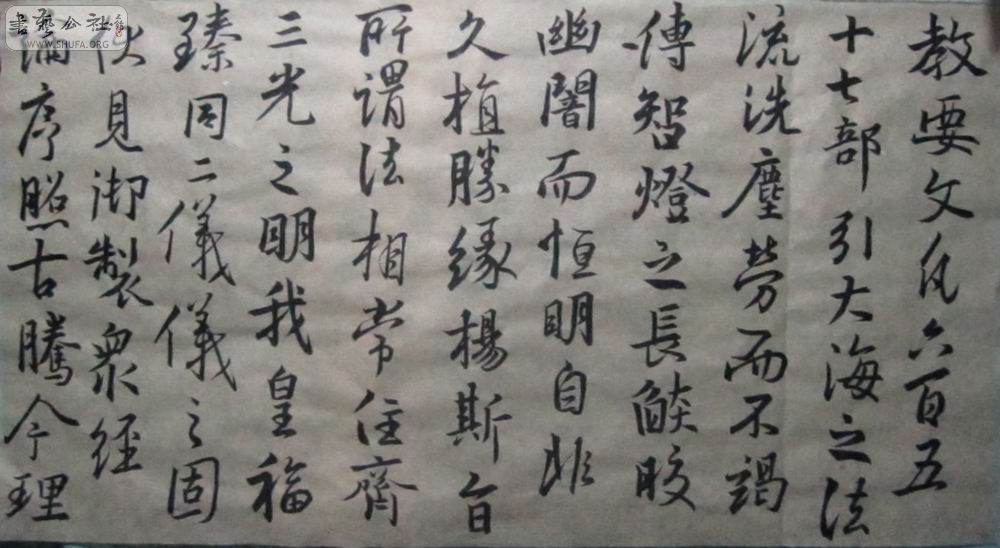 教要文凡六百五
十七部引大海之法
流洗塵勞而不竭
傳智燈之長燄皎
幽闇而恒明自非
久植勝緣楊斯旨
所謂法相常住齊
三光之明我皇福
臻同二儀儀之固
伏見御製眾經
論序照古騰今理
書藝公社
WWW.SHUFA.ORG